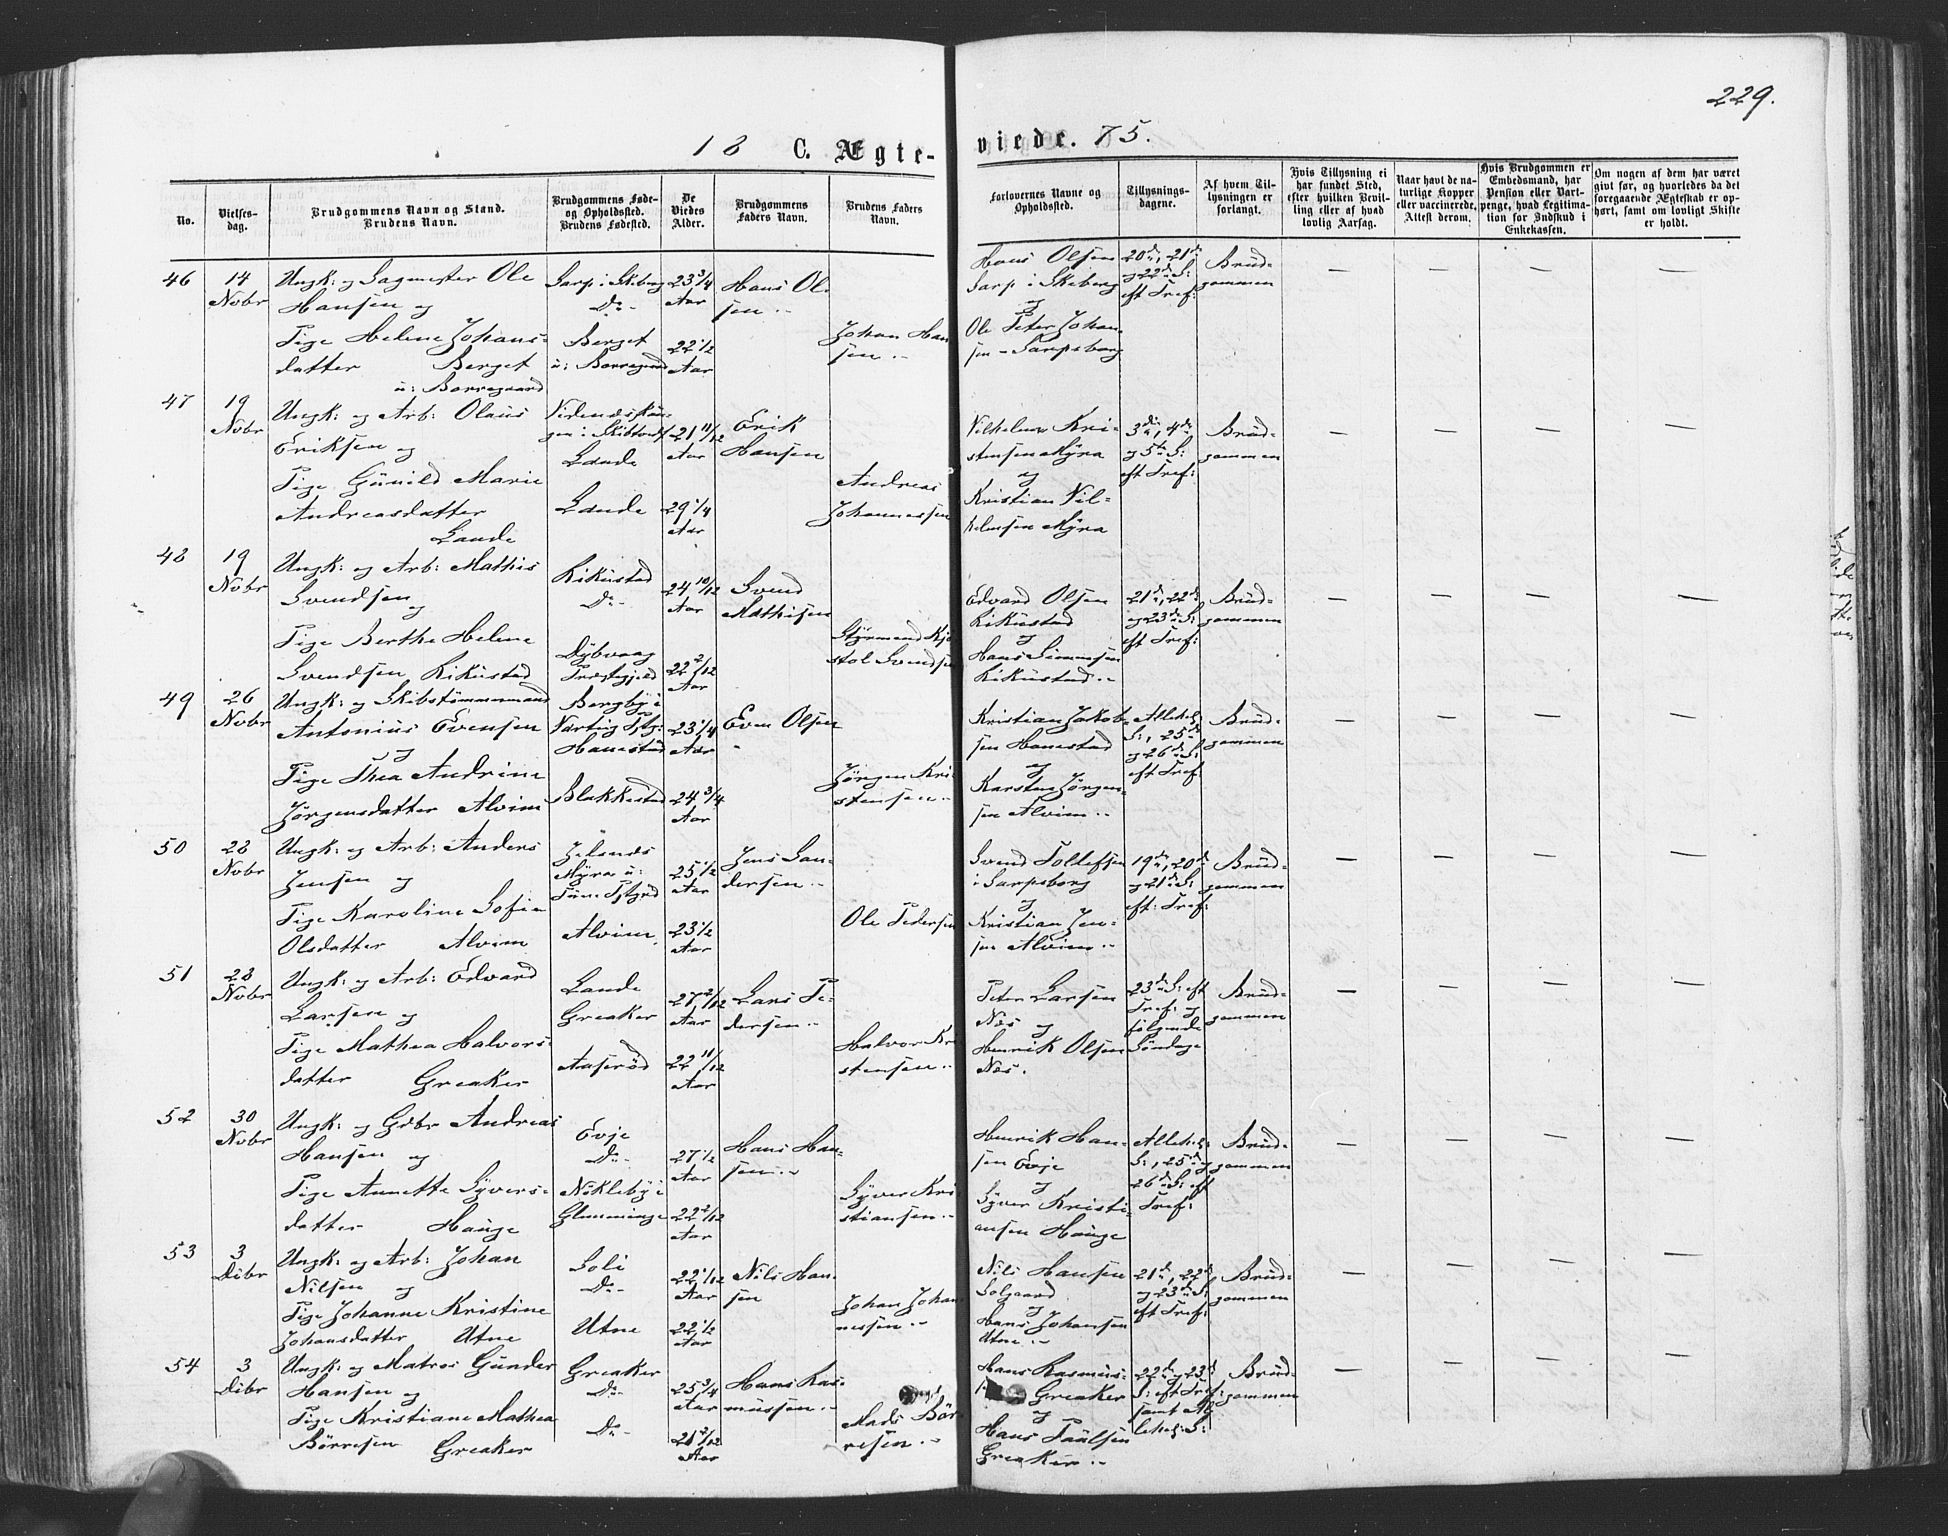 229.
18 C. Ægte-viede. 75.
No.
Vielses-
dag.
Brudgommens Navn og Stand.
Brudens Navn.
Brudgommens Føde-
og Opholdssted.
Brudens Fødested.
De
Viedes
Alder.
Brudgommens
Faders Navn.
Brudens Faders
Navn.
Forlovernes Navne og
Opholdssted.
Tillysnings-
dagene.
Af hvem Til-
lysningen er
forlangt.
Hvis Tillysning ei
har fundet Sted,
efter hvilken Bevil-
ling eller af hvad
lovlig Aarsag.
Naar havt de na-
turlige Kopper
eller vaccinerede,
Attest derom.
Hvis Brudgommen er
Embedsmand, har
Pension eller Vart-
penge, hvad Legitima-
tion for Indskud i
Enkekassen.
Om nogen af dem har været
givt før, og hvorledes da det
foregaaende Ægteskab er op-
hørt, samt om lovligt Skifte
er holdt.
46
14
Nobr
Ungk: og Sagmester Ole
Hansen og
Pige Helene Johans-
datter Berget
u: Borregaard
Sarp i Skeberg
Do-
Berget
u: Borregaard
23 3/4
Aar
22 1/2
Aar
Hans Ol-
sen..
Johan Han
sen..
Hans Olsen
Sarp i Skeberg
og
Ole Peter Johan-
sen - Sarpsborg
20de, 21de
og 22de S:
eft Tref:
Brud-
gommen
— — — —
47
19
Nobr
Ungk: og Arb: Olaus
Eriksen og
Pige Gunild Marie
Andreasdatter
Lande
Lande
Lande
21 11/12
Aar
29 1/4
Aar
Erik
Hansen
Andreas
Johannessen
Vilhelm Kri-
stensen Myra
og
Kristian Vil-
helmsen Myra
3die, 4de
og 5te S:
eft Tref:
Brud-
gommen
— — — —
48
19
Nobr
Ungk: og Arb: Mathis
Svendsen
og
Pige Berthe Helene
Svendsen Kikustad
Kikustad
Do-
Dybvaag
Præstegjeld
24 10/12
Aar
22 2/12
Aar
Svend
Mathisen
Styrmand Kjø
stol Svendsen
Edvard Olsen
Kikustad
og
Hans Simensen
Kikustad..
21de, 22de
og 23de S:
eft Tref:
Brud-
gommen
— — — —
49
26
Nobr
Ungk: og Skibstømmermand
Antonius Evensen
og
Pige Thea Andrine
Jørgensdatter Alvim
Bergby i
Varteig
Hanestad
Blakkestad
23 1/4
Aar
24 3/4
Aar
Even Olsen
Jørgen Kri-
stensen..
Kristian Jakob-
sen Hanestad
og
Karsten Jørgen-
sen Alvim..
Allehelg:
S:, 25de
og 26de S:
eft Tref:
Brud-
gommen
— — — —
50
28
Nobr
Ungk: og Arb: Anders
Jensen og
Pige Karoline Sofie
Olsdatter Alvim
Myra u:
Tune
Alvim.
25 1/2
Aar
23 1/2
Aar
Jens San-
dersen..
Ole Pedersen
Svend Tollefsen
i Sarpsborg
og
Kristian Jen-
sen Alvim..
19de, 20de
og 21de S:
eft: Tref:
Brud-
gommen
— — — —
51
28
Nobr
Ungk: og Arb: Edvard
Larsen og
Pige Mathea Halvors-
datter Greaker
Lande
Greaker
Aaserød
27 2/12
Aar
22 11/12
Aar
Lars Pe-
dersen..
Halvor Kri
stensen..
Peter Larsen
Næs og
Henrik Olsen
Næs.
23de S: eft
Tref: og
følgende
Søndage
Brud-
gommen
— — — —
52
30
Nobr
Ungk: og Gdbr Andreas
Hansen og
Pige Annette Syvers-
datter Hauge
Evje
Do-
Nokleby i
Glemminge
27 1/2
Aar
22 2/12
Aar
Hans Han-
sen..
Syver Kri-
stiansen..
Henrik Han-
sen Evje
og
Syver Kristi-
ansen Hauge
Allehelg:
S:, 25de og
26de S: eft
Tref:
Brud-
gommen
— — — —
53
3
Dibr
Ungk: og Arb: Johan
Nilsen og
Pige Johanne Kristine
Johansdatter Utne
Soli
Do-
Utne
22 1/12
Aar
22 1/2
Aar
Nils Han-
sen
Johan Johan
nessen..
Nils Hansen
Solgaard
og
Hans Johansen
Utne..
21de, 22de
og 23de S:
eft Tref:
Brud-
gommen
— — — —
54
3
Dibr
Ungk: og Matros Gunder
Hansen og
Pige Kristiane Mathea
Børresen Greaker
Greaker
Do-
Do-
25 3/4
Aar
21 2/12
Aar
Hans Ras-
mussen..
Mads Bør-
resen..
Hans Rasmus-
Greaker
og
Hans Paulsen
Greaker..
22de og 23de
S: eft Tref:
samt Al-
lehelg: S:
Brud-
gommen
— — — —